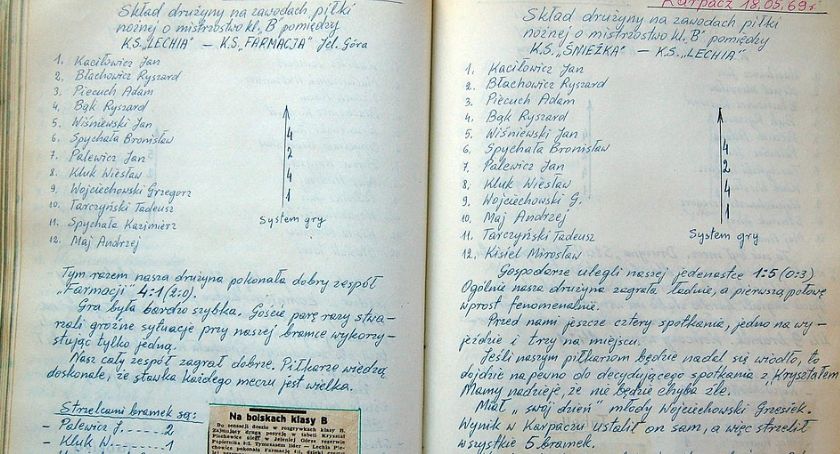 Skład drużyny na zawodach piłki
nożnej o mistrzostwo kl. „B" pomiędzy
K.S. „LECHIA" — K.S. „FARMACJA" Jel. Góra
1. Kaciłowicz Jan
2. Błachowicz Ryszard
3. Piecuch Adam
4. Bąk Ryszard
5. Wiśniewski Jan
6. Spychała Bronisław
7. Palewicz Jan
8. Kluk Wiesław
9. Wojciechowski Grzegorz
10. Tarczyński Tadeusz
11. Spychała Kazimierz
12. Maj Andrzej
4
2
4
1
System gry
Tym razem nasza drużyna pokonała dobry zespół
„Farmacji" 4:1 (2:0).
Gra była bardzo szybka. Goście parę razy stwa-
rzali groźne sytuacje przy naszej bramce wykorzy-
stując tylko jedną.
Nasz cały zespół zagrał dobrze. Piłkarze wiedzą
doskonale, że stawka każdego meczu jest wielka.
Strzelcami bramek są:
- Palewicz J. 2
- Kluk W. 1
Na boiskach klasy B
Karpacz 18.05.69 r.
Skład drużyny na zawodach piłki
nożnej o mistrzostwo kl. „B" pomiędzy
K.S. „ŚNIEŻKA" — K.S. „LECHIA"
1. Kaciłowicz Jan
2. Błachowicz Ryszard
3. Piecuch Adam
4. Bąk Ryszard
5. Wiśniewski Jan
6. Spychała Bronisław
7. Palewicz Jan
8. Kluk Wiesław
9. Wojciechowski G.
10. Maj Andrzej
11. Tarczyński Tadeusz
12. Kisiel Mirosław
4
2
4
1
System gry
Gospodarze ulegli naszej jedenastce 1:5 (0:3)
Ogólnie nasza drużyna zagrała ładnie, a pierwszą połowę
wprost fenomenalnie.
Przed nami jeszcze cztery spotkania, jedno na wy-
jeździe i trzy na miejscu.
Jeśli naszym piłkarzom będzie nadal się wiodło, to
dojdzie na pewno do decydującego spotkania z „Kryształem"
Mamy nadzieję, że nie będzie chyba źle.
Miał „swój dzień" młody Wojciechowski Grzesiek.
Wynik w Karpaczu ustalił on sam, a więc strzelił
wszystkie 5 bramek.